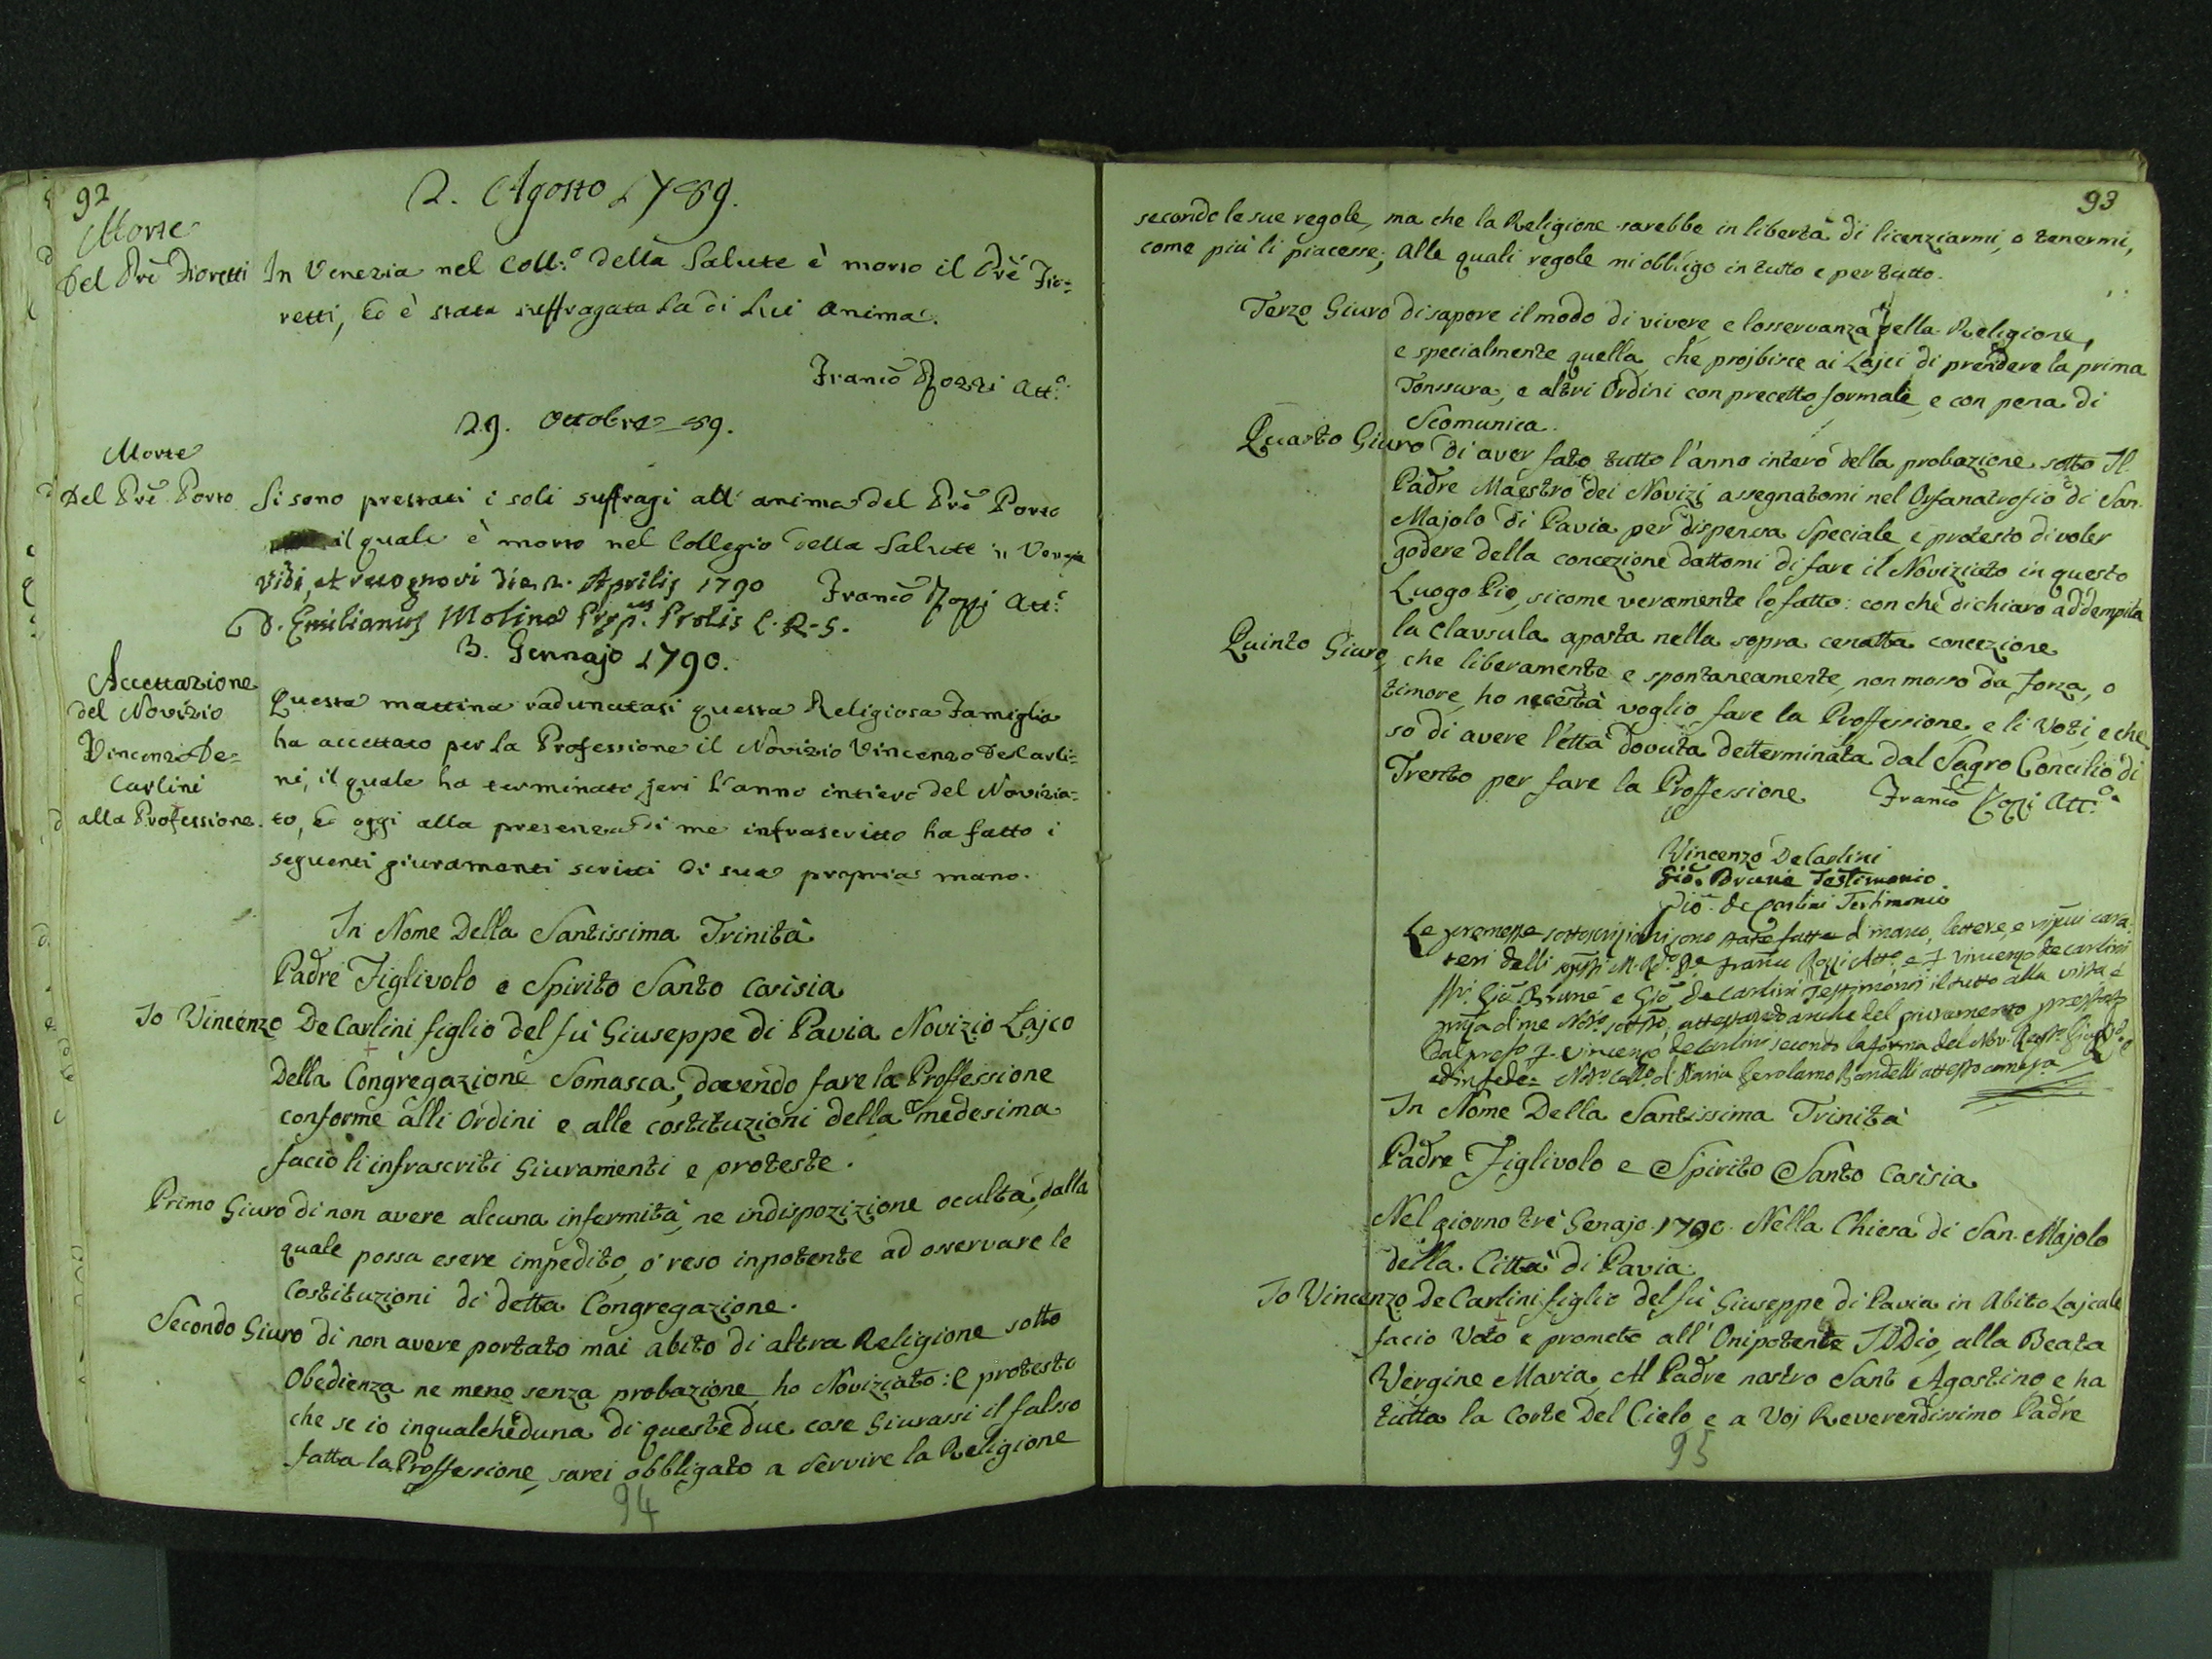 92
2. Agosto 1789.
Morte
Del Prê Fioretti
In Venezia nel Coll:º della Salute è morto il Prê Fio=
retti, Ed è stata suffragata La di Lui anima.
Franco Rozzi Att.º
29. Ottobre 89.
Morte
Del Prê Porro
Si sono prestati i soli suffragi all' anima del Prê Porro
il quale è morto nel Collegio della Salute in Venezia
Vidi, et recognovi die 2. Aprilis 1790 Franco Rozzi Att.º
D. Emilianus Molina Prep. Prolis C. R. S.
3. Gennajo 1790.
Accettazione
del Novizio
Vincenzo De=
Carlini
alla Professione.
Questa mattina radunatasi questa Religiosa Famiglia
ha accettato per la Professione il Novizio Vincenzo DeCarli=
ni, il quale ha terminato jeri l'anno intiero del Novizia=
to, Ed oggi alla presenza di me infrascritto ha fatto i
seguenti giuramenti scritti di sua propria mano.
In Nome Della Santissima Trinità
Padre Figlivolo e Spirito Santo Cosisia
Io Vincenzo De Carlini figlio del fù Giuseppe di Pavia Novizio Lajco
Della Congregazione Somasca, dovendo fare la Proffessione
conforme alli Ordini e alle costituzioni della medesima
facio li infrascriti Giuramenti e proteste.
Primo Giuro di non avere alcuna infermità, ne indispozizione oculta, dalla
quale possa esere impedito, o' reso inpotente ad osservare le
Costituzioni di detta Congregazione.
Secondo Giuro di non avere portato mai abito di altra Religione sotto
Obedienza ne meno senza probazione, ho Noviziato: e protesto
che se io inqualcheduna di queste due cose Giurassi il falso
fatta la Proffessione, sarei obbligato a servire la Religione
94
93
secondo le sue regole, ma che la Religione sarebbe in libertà di licenziarmi, o tenermi,
come più li piacesse; Alle quali regole mi obbligo in tutto e per tutto.
Terzo Giuro di sapere il modo di vivere e losservanza della Religione,
e specialmente quella che projbisce ai Lajci di prendere la prima
Tonssura, e altri Ordini con precetto formale, e con pena di
Scomunica.
Quarto Giuro di aver fato tutto l'anno intero della probazione sotto Il
Padre Maestro dei Novizi assegnatomi nel Orfanatrofio di San
Majolo di Pavia per dispensa Speciale e protesto di voler
godere della concezione dattomi di fare il Noviziato in questo
Luogo Pio, sicome veramente lo fatto: con che dichiaro addempita
la Clausula aposta nella sopra cenatta concezione
Quinto Giuro, che liberamente e spontaneamente, non mosso da Forza, o
timore, ho necestà voglio fare la Proffessione, e li Voti, e che
so di avere l'ettà dovuta detterminata dal Sagro Concilio di
Trento per fare la Proffessione Franco Rozzi Att.º
Vincenzo DeCarlini
Gio. Brunè Testimonio
Gio. de Carlini Testimonio
Le premesse sottoscrizioni sono state fatte di mano, lettere, e rispvi cara=
teri delli sudti M. Rdo Pe Franco Rozzi Atto e F. Vincenzo de Carlini
Gio. Brunè e Gio. de Carlini Testimonii il tutto alla vista e
di me Notº sottº, attestando anche del giuramento prestato
dal predº F. Vincenzo Decarlini secondo la forma del
ed in fede= Notº Collº di Pavia Gerolamo Bandelli attesto come sopra
In Nome Della Santissima Trinità
Padre Figlivolo e Spirito Santo Cosisia
Nel giorno tre Genajo 1790. Nella Chiesa di San Majolo
della Città di Pavia.
Io Vincenzo De Carlini figlio del fù Giuseppe di Pavia in Abito Lajcale
facio Voto e prometo all' Onipotente IDDio, alla Beata
Vergine Maria, Al Padre nostro Sant Agostino e ha
tutta la Corte Del Cielo e a Voj Reverendissimo Padre
95